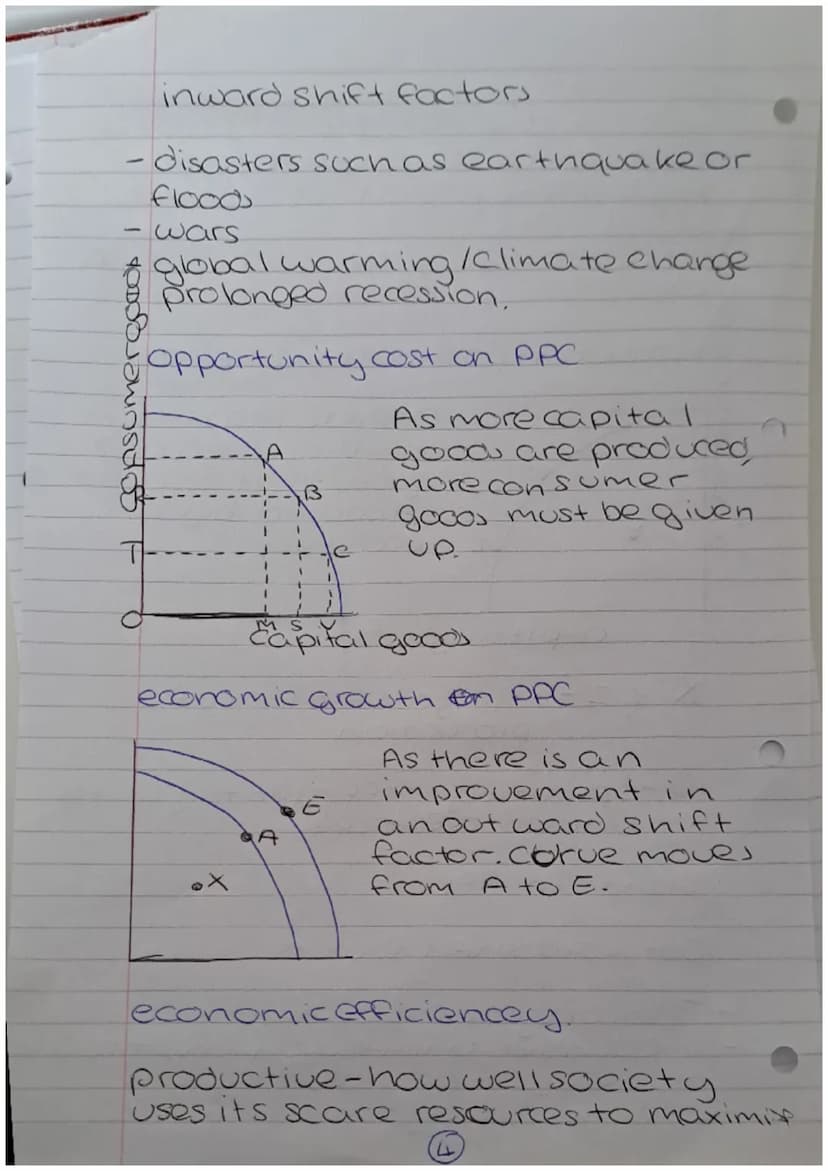 inward shift factors
- disasters such as earthquake or
floods
- wars
global warming/climate change
prolonged recession.
opportunity cost on PPC
consumer goods
A
B
T
C
O
M S V
capital goods
As more capital
goods are produced,
more consumer
goods must be given
up.
economic growth on PPC
E
A
X
As there is an
improvement in
an outward shift
factor. curve moves
from A to E.
economic efficiencey.
productive - how well society
uses its scare resources to
4